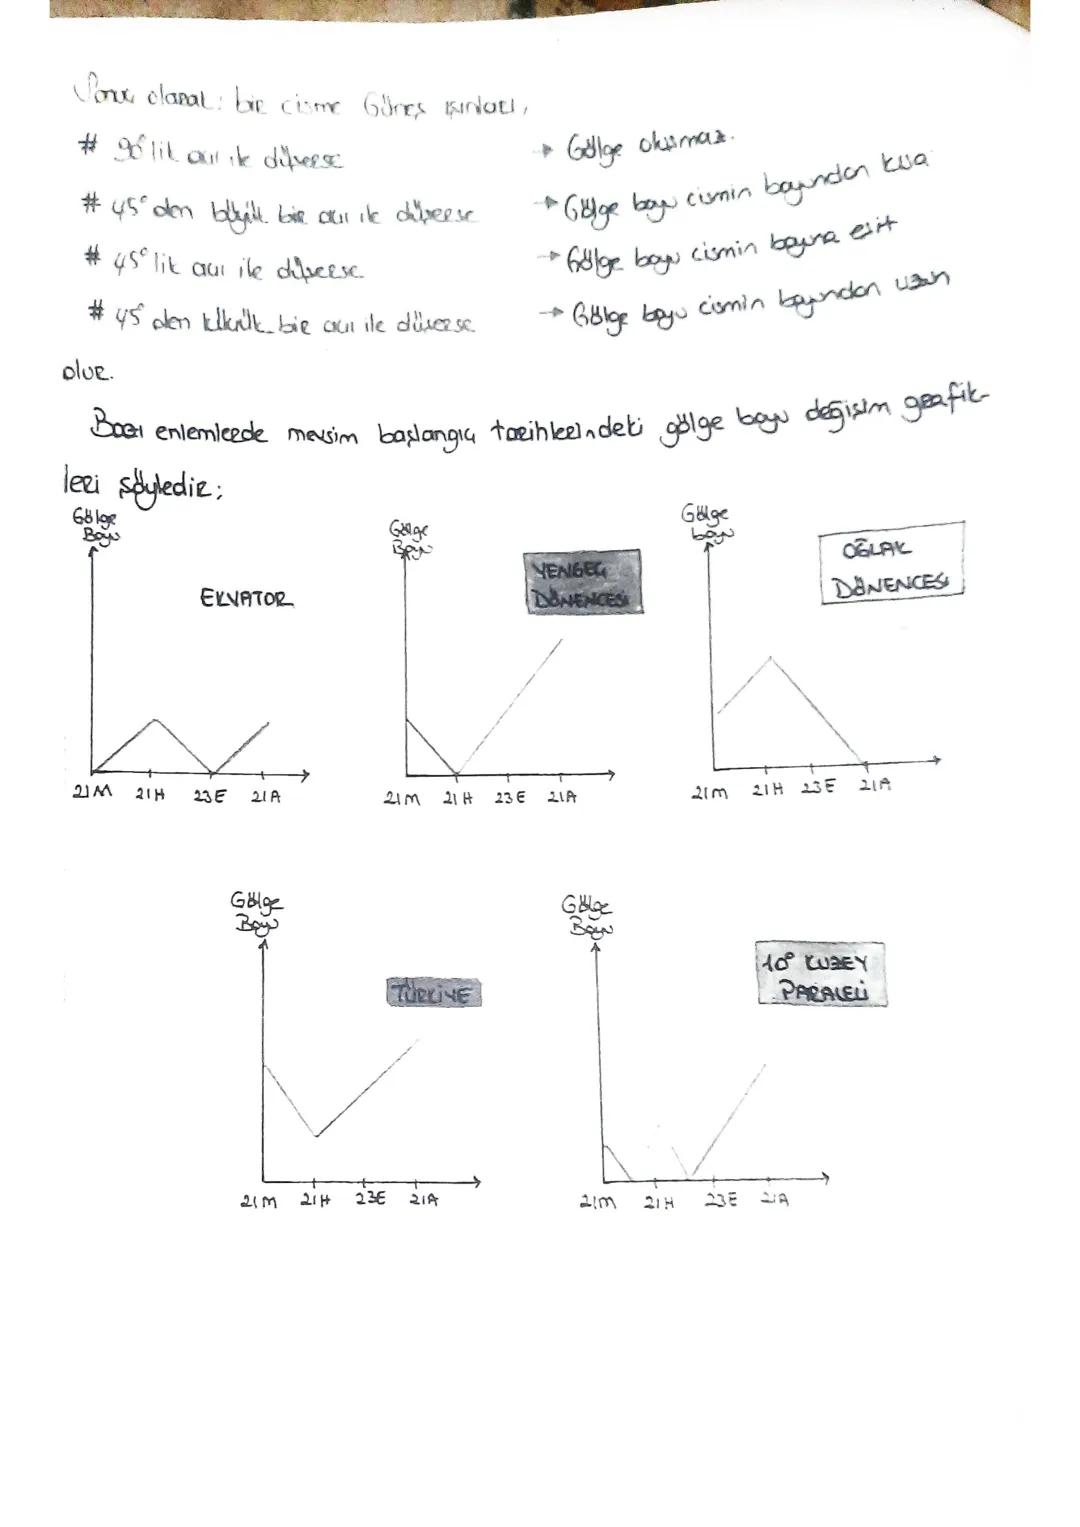 Sonuç olarak: bir cisme Güneş ışınları,
# 90°lik açı ile düşerse → Gölge oluşmaz.
# 45°den büyük bir açı ile düşerse → Gölge boyu cismin boyundan kısa
# 45°lik açı ile düşerse → Gölge boyu cismin boyuna eşit
# 45°den küçük bir açı ile düşerse → Gölge boyu cismin boyundan uzun
olur.
Bazı enlemlerde mevsim başlangıç tarihlerindeki gölge boyu değişim grafik-
leri şöyledir;
Gölge
Boyu
EKVATOR
21M 21H 23E 21A
Gölge
Boyu
YENGEÇ
DÖNENCESİ
21M 21H 23E 21A
Gölge
boyu
OĞLAK
DÖNENCESİ
21M 21H 23E 21A
Gölge
Boyu
TÜRKİYE
21M 21H 23E 21A
Gölge
Boyu
10° KUZEY
PARALELİ
21M 21H 23E 21A